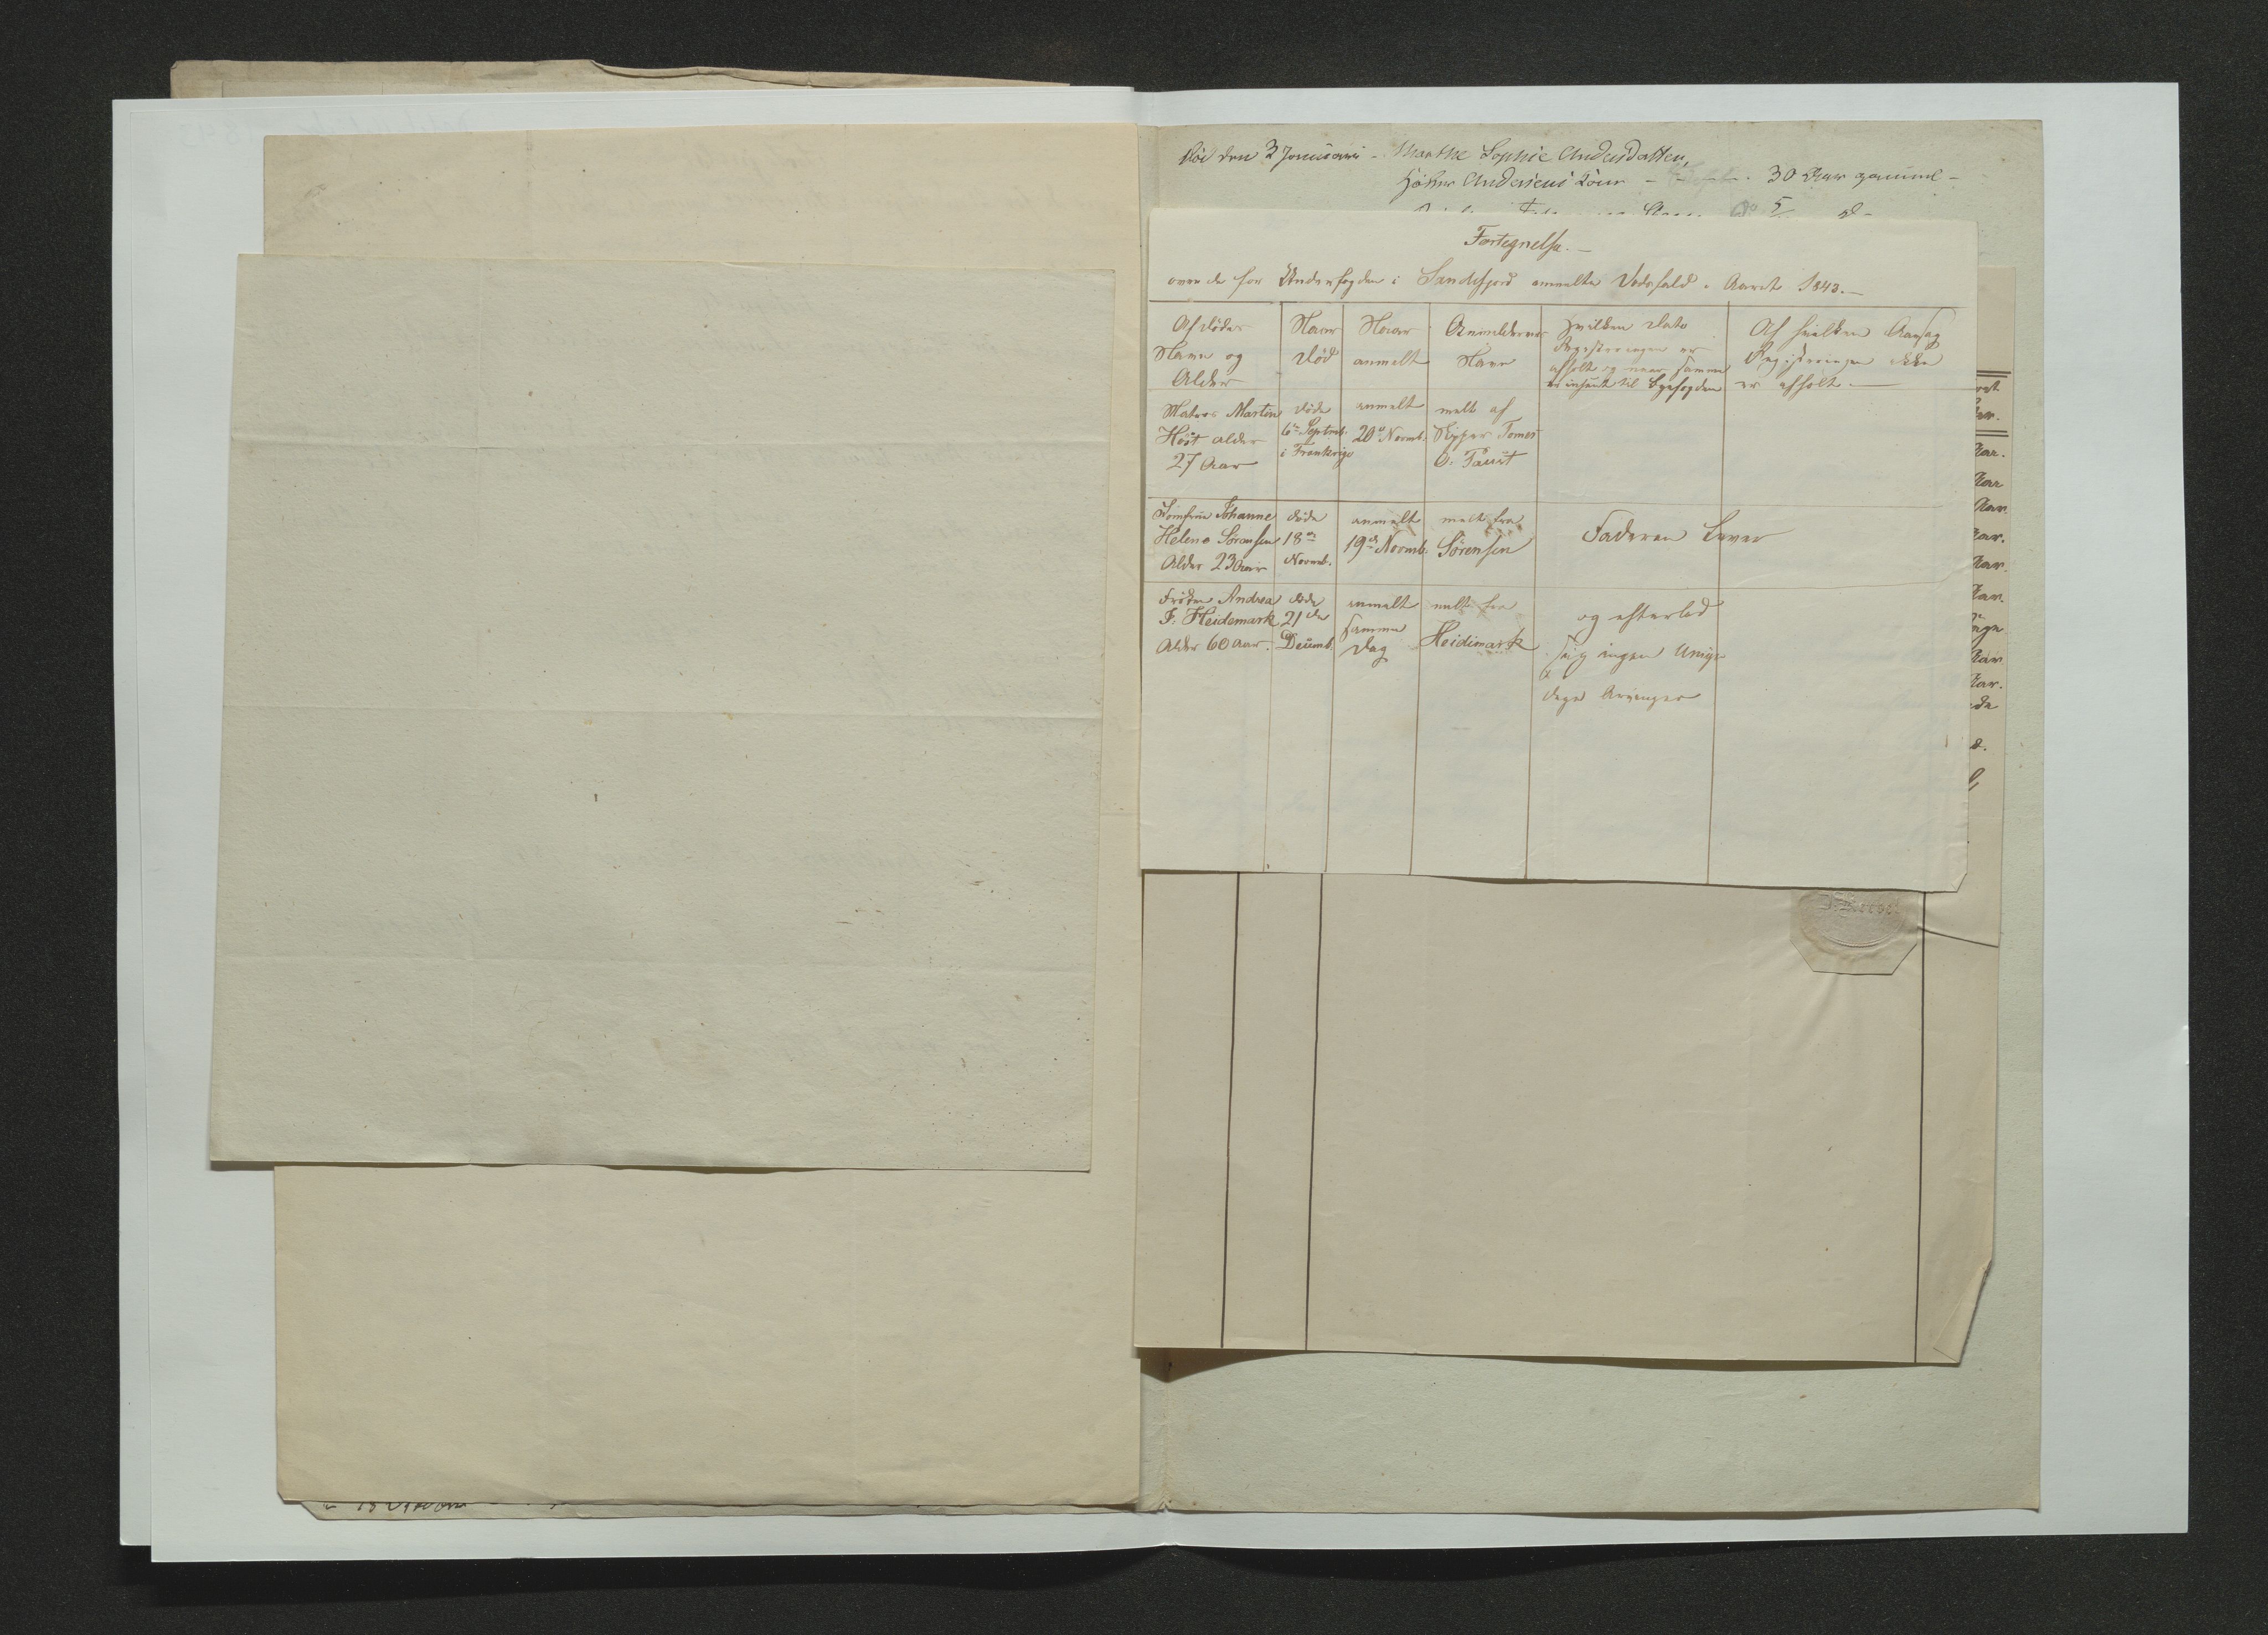 Død den 3 Januari - Marthe Sophie Andersdatter,
Andersens Kone - 30 Aar gammel -
Fortegnelse. -
over de for Underfogden i Sandefjord anmeldte Dødsfald i Aaret 1843. -
Afdødes Navn og Alder
Naar død
Naar anmelt
Anmelderens Navn
Hvilken Dato Registreringen er afholt og naar samme er insent til Byefogden
Af hvilken Aarsag Registreringen ikke er afholt. -
Matros Martin Høst alder 27 Aar
døde 6te Septmb. i Frankrige
anmelt 20de Novmb.
melt af Skipper Tomes O: Faust
Jomfrue Johanne Helene Sørensen Alder 23 Aar
døde 18de Novmb.
anmelt 19de Novmb.
melt fra Sørensen
Faderen Lever
Frøken Andrea F. Heidemark Alder 60 Aar.
døde 21de Decmb.
anmelt samme Dag
melt fra Heidimark
og efterlod sig ingen Umyndige Arvinger